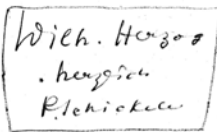 Wilh. Herzog
. herzlich
R. Schickele